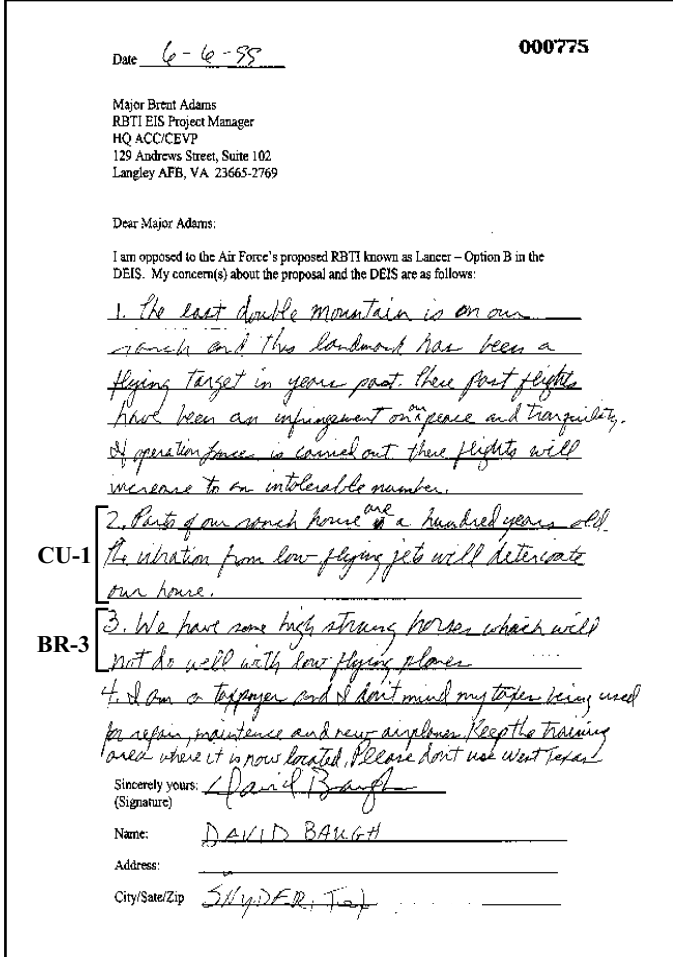 000775
Date 6-6-99
Major Brent Adams
RBTI EIS Project Manager
HQ ACC/CEVP
129 Andrews Street, Suite 102
Langley AFB, VA 23665-2769
Dear Major Adams:
I am opposed to the Air Force's proposed RBTI known as Lancer – Option B in the
DEIS. My concern(s) about the proposal and the DEIS are as follows:
1. The east double mountain is on our
ranch and this landmark has been a
flying target in years past. These past flights
have been an infringement on our peace and tranquility.
If operation is carried out these flights will
increase to an intolerable number.
2. Parts of our ranch house are a hundred years old.
CU-1
The vibration from low flying jets will
our house.
3. We have some high strung horses which will
BR-3
not do well with low flying planes
4. I am a taxpayer and I don't mind my taxes being used
for repair, maintence and new airplanes. Keep the training
area where it is now located. Please don't use West Texas
Sincerely yours: David Baugh
(Signature)
Name: DAVID BAUGH
Address:
City/Sate/Zip SNYDER, Tex